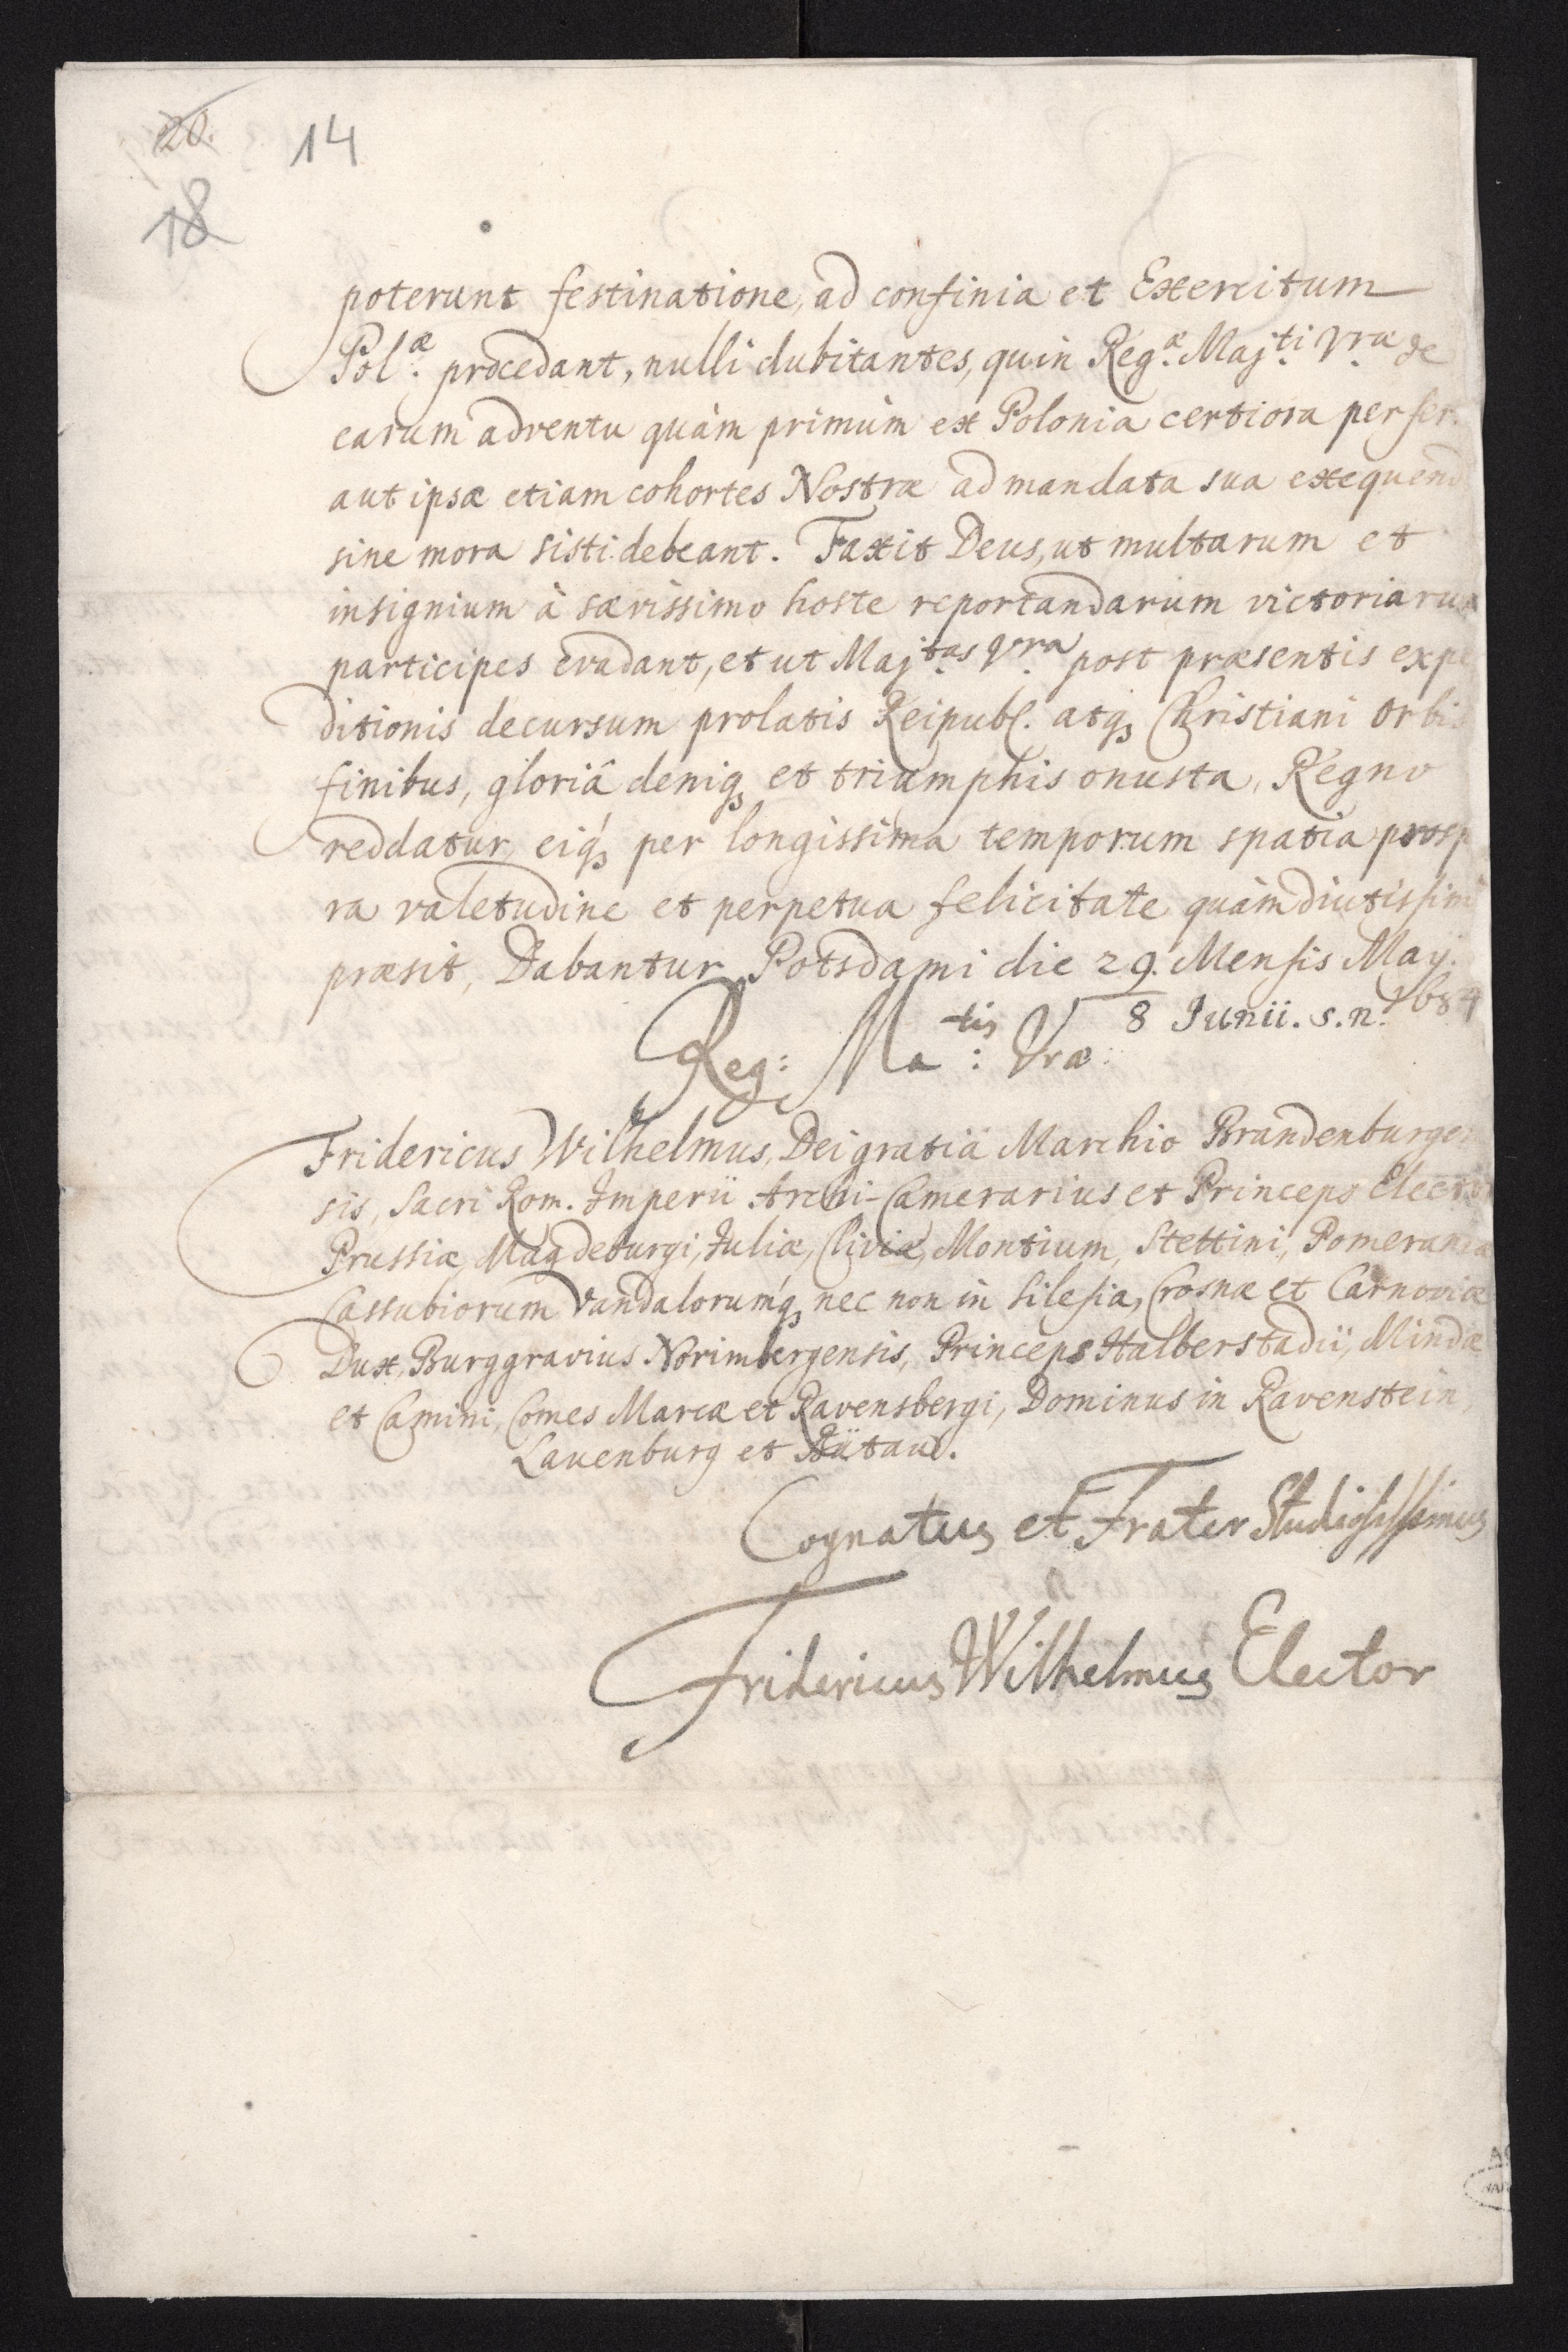 20.
14
18
poterunt festinatione, ad confinia et Exercitum
Pol.æ procedant, nulli dubitantes, quin Reg.æ Maj.ti Vr.æ de
earum adventu quàm primùm ex Polonia certiora perfer
aut ipsæ etiam cohortes Nostræ ad mandata sua exequend
sine mora sisti debeant. Faxit Deus, ut multarum et
insignium à sævissimo hoste reportandarum victoriarum
participes evadant, et ut Maj.tas Vr.a post præsentis expe
ditionis decursum prolatis Reipubl. atq; Christiani Orbis
finibus, gloriâ deniq; et triumphis onusta, Regno
reddatur, eiq; per longissima temporum spatia prosp
ra valetudine et perpetua felicitate quàm diutissim
præsit, Dabantur Potsdami die 29. Mensis Maij.
8 Junii. s.n. 1684
Reg: Ma:tis Vræ:
Fridericus Wilhelmus, Dei gratiâ Marchio Brandenburgen
sis, Sacri Rom. Imperii Archi-Camerarius et Princeps Elector
Prussiæ, Magdeburgi, Juliæ, Cliviæ, Montium, Stettini, Pomeraniæ
Cassubiorum Vandalorumq; nec non in Silesia, Crosnæ et Carnoviæ
Dux, Burggravius Norimbergensis, Princeps Halberstadii, Mindæ
et Camini, Comes Marcæ et Ravensbergi, Dominus in Ravenstein,
Lauenburg et Bütau.
Cognatus et Frater Studiosissimus
Fridericus Wilhelmus Elector